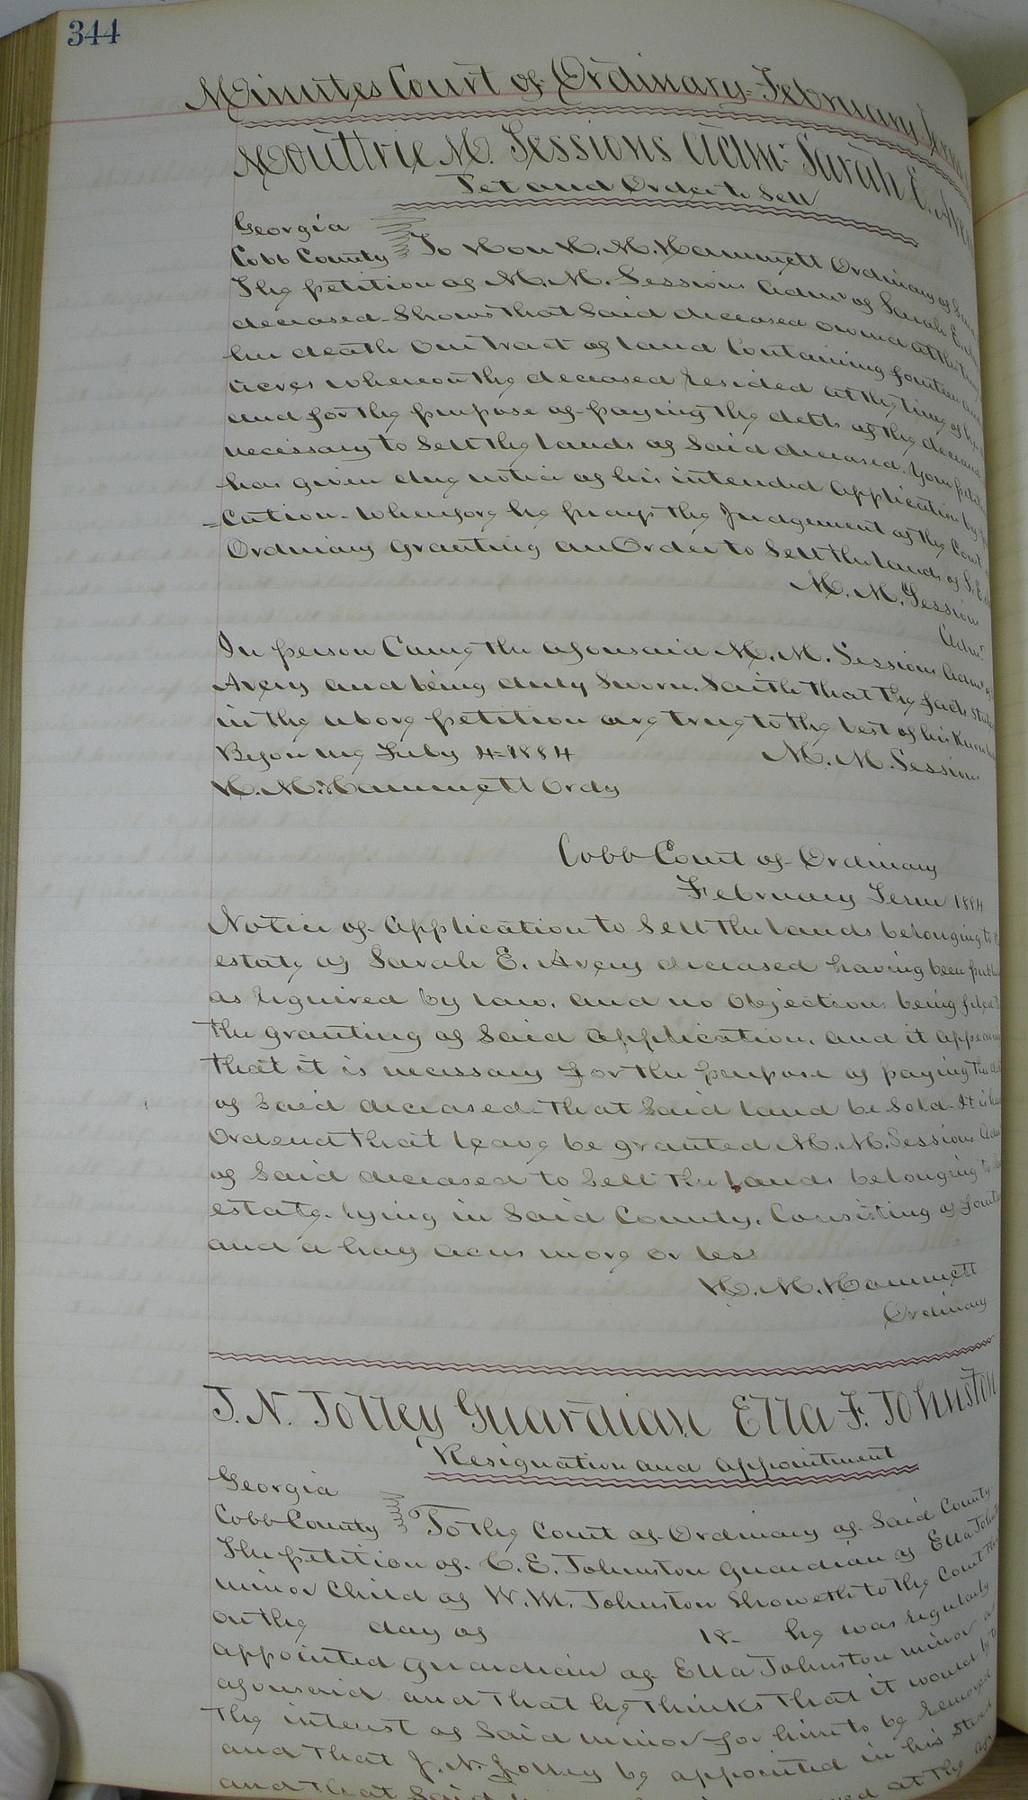 344
Minutes Court of Ordinary February Term
Moultrie M. Sessions Adm: Sarah E. Avery
Pet and Order to Sell
Georgia
Cobb County To Hon H. M. Hammett Ordinary of Said
The petition of M. M. Sessions Admr of Sarah E.
deceased Shows that Said deceased owned at the time
her death One tract of land Containing fourteen and
acres whereon the deceased resided at the time of her
and for the purpose of paying the debts of the deceased
necessary to Sell the lands of Said deceased. Your
has given due notice of his intended application by
=cation. Wherefore he prays the Judgement of the Court
Ordinary granting an Order to Sell the lands of S. E.
M. M. Sessions
Admr
In person Came the aforesaid M. M. Sessions Admr of
Avery and being duly Sworn. Saith that the facts
in the above petition are true to the best of his
Before me Feby 4-1884 M. M. Sessions
H. M. Hammett Ordy
Cobb Court of Ordinary
February Term 1884
Notice of Application to Sell the lands belonging to
estate of Sarah E. Avery deceased having been
as required by law, and no Objections being filed
the granting of Said application, and it appearing
that it is necessary for the purpose of paying the
of Said deceased that Said land be Sold. It is
Ordered that leave be granted M. M. Sessions Adm
of Said deceased to Sell the lands belonging to
estate. lying in Said County. Consisting of
and a half acres more or less
H. M. Hammett
Ordinary
J. N. Jolley Guardian Ella F. Johnston
Resignation and appointment
Georgia
Cobb County To the Court of Ordinary of Said County
The petition of C. E. Johnston guardian of Ella
minor Child of W. M. Johnston Showeth to the Court
on the day of 18- he was regularly
appointed guardian of Ella Johnston minor
aforesaid and that he thinks that it would
the interest of Said minor for him to be removed
and that J. N. Jolley be appointed in his Stead
and that Said at the